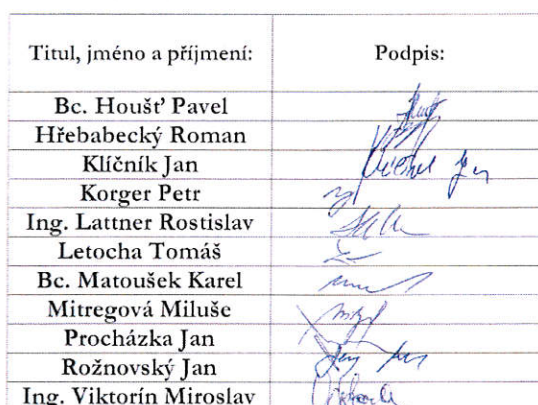 Titul, jméno a příjmení: Podpis:
Bc. Houšť Pavel
Hřebabecký Roman
Klíčník Jan
Korger Petr
Ing. Lattner Rostislav
Letocha Tomáš
Bc. Matoušek Karel
Mitregová Miluše
Procházka Jan
Rožnovský Jan
Ing. Viktorín Miroslav